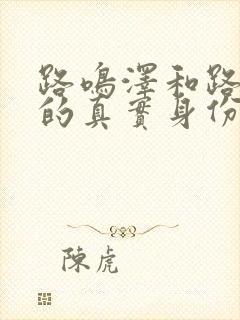 路鳴澤和路
的真實身份
陳虎